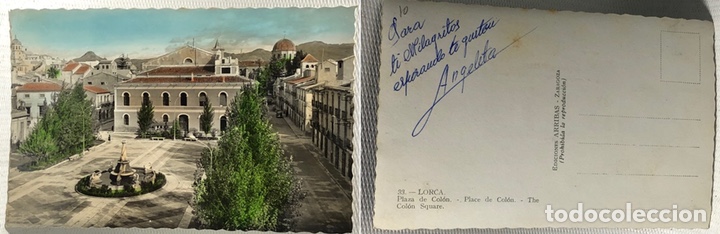 10
Para
ti Milagritos
esperando te gusten
Angelita
EDICIONES ARRIBAS - ZARAGOZA
(Prohibida la reproducción)
33. — LORCA
Plaza de Colón. - Place de Colón. - The
Colón Square.
todocoleccion.net